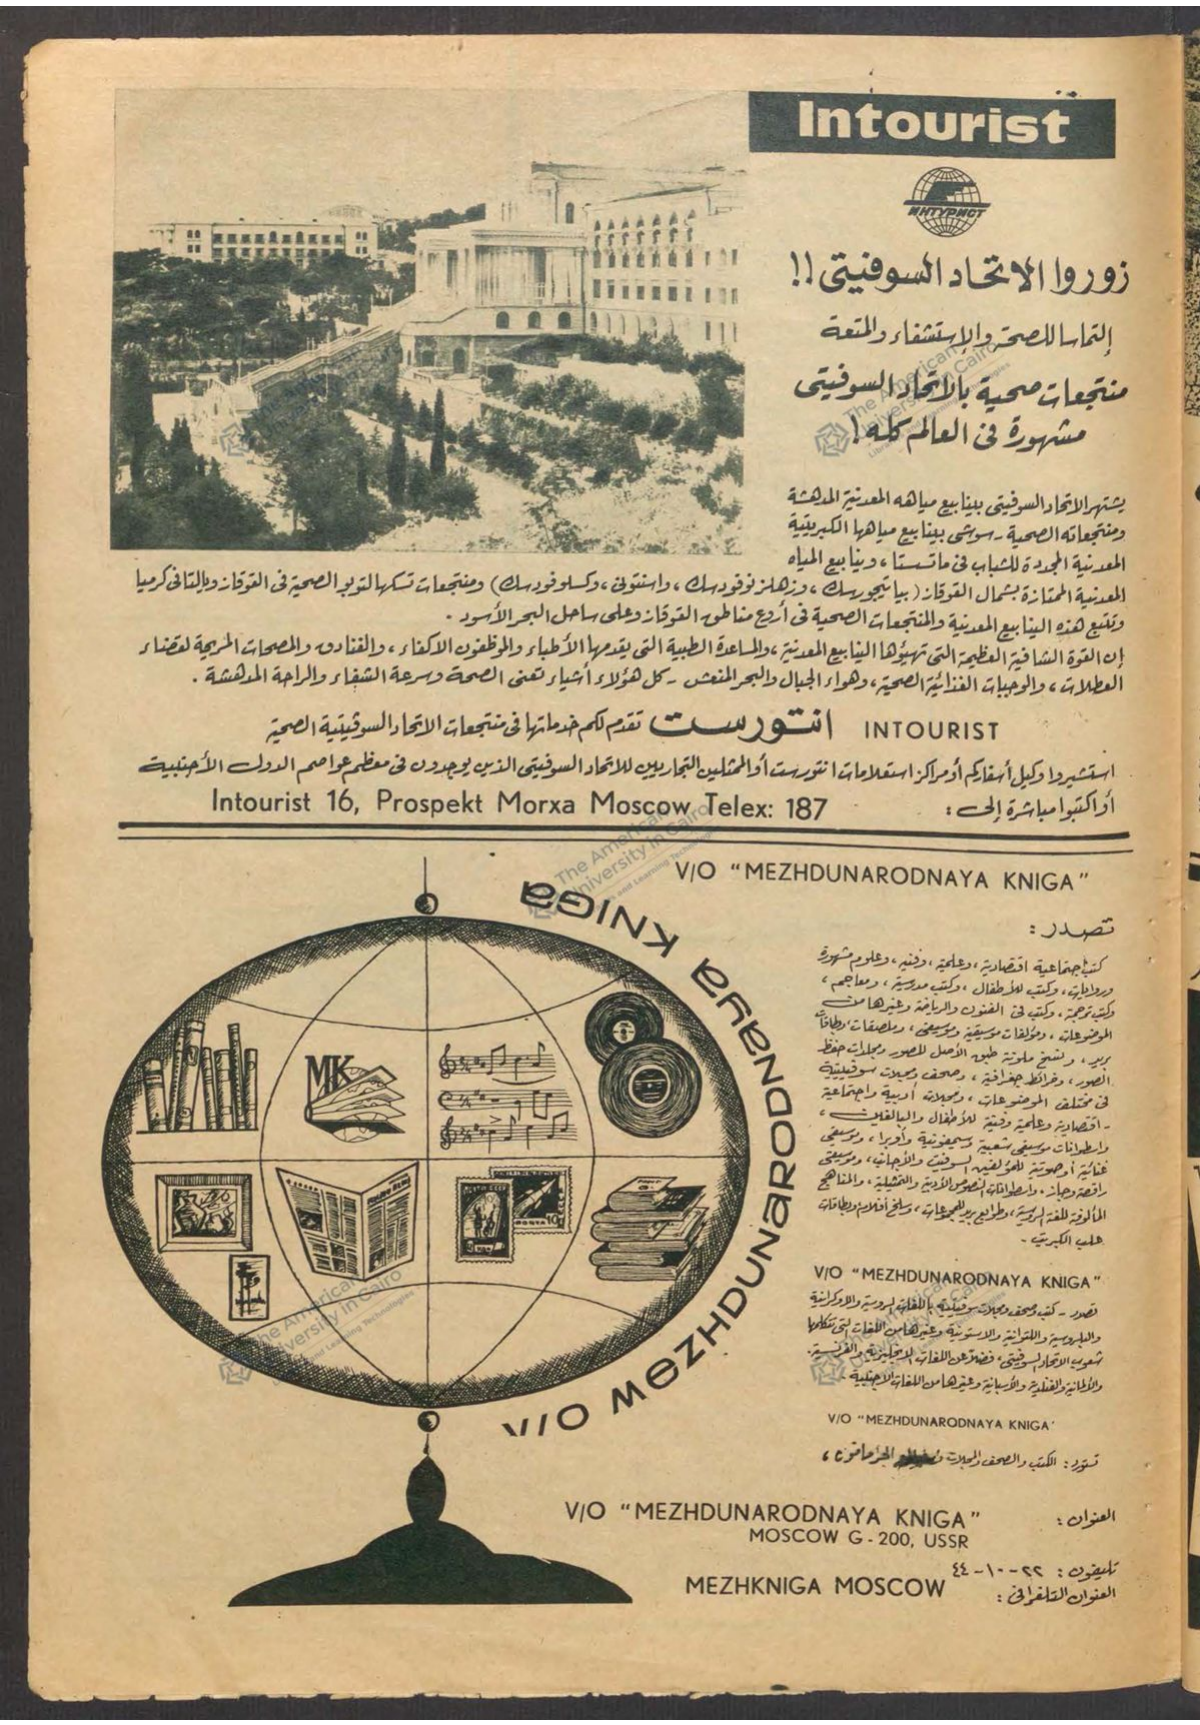 Intourist
ИНТУРИСТ
زوروا الاتحاد السوفيتى !!
إلتماسا للصحة والاستشفاء والمتعة
منتجعات صحية بالاتحاد السوفيتى
مشهورة فى العالم كله !
يشتهر الاتحاد السوفيتى بينابيع مياهه المعدنية المدهشة
ومنتجعاته الصحية - سوشى بينابيع مياهها الكبريتية
المعدنية المجددة للشباب فى ماتسستا ، وينابيع المياه
المعدنية الممتازة بشمال القوقاز ( بياتيجورسك ، وزهلزنوفودسك ، واسنتوكى ، وكسلوفودسك ) ومنتجعات تسكهالتوبو الصحية فى القوقاز وبالتالى كرميا
وتتبع هذه الينابيع المعدنية والمنتجعات الصحية فى أروع مناطق القوقاز وعلى ساحل البحر الأسود .
إن القوة الشافية العظيمة التى تهيؤها الينابيع المعدنية ، والمساعدة الطبية التى يقدمها الأطباء والموظفون الاكفاء ، والفنادق والمصحات المريحة لقضاء
العطلات ، والوجبات الغذائية الصحية ، وهواء الجبال والبحر المنعش - كل هؤلاء أشياء تعنى الصحة وسرعة الشفاء والراحة المدهشة .
INTOURIST انتورست تقدم لكم خدماتها فى منتجعات الاتحاد السوفيتية الصحية
استشيروا وكيل أسفاركم أو مراكز استعلامات انتورست أو الممثلين التجاريين للاتحاد السوفيتى الذين يوجدون فى معظم عواصم الدول الأجنبية
أو اكتبوا مباشرة إلى :
Intourist 16, Prospekt Morxa Moscow Telex: 187
V/O "MEZHDUNARODNAYA KNIGA"
تصدر :
كتب اجتماعية اقتصادية ، وعلمية ، وفنية ، وعلوم مشهورة
وروايات ، وكتب للأطفال ، وكتب مدرسية ، ومعاجم ،
وكتب ترجمة ، وكتب فى الفنون والرياضة وغيرها من
الموضوعات ، ومؤلفات موسيقية وموسيقى ، وملصقات وبطاقات
بريد ، ونسخ ملونة طبق الأصل للصور ومجلدات حفظ
الصور ، وخرائط جغرافية ، وصحف ومجلات سوفيتية
فى مختلف الموضوعات ، ومجلات أدبية واجتماعية
- اقتصادية وعلمية وفنية للأطفال والبالغين ،
واسطوانات موسيقى شعبية وسيمفونية وأوبرا ، وموسيقى
غنائية أو صوتية للمؤلفين السوفيت والأجانب ، وموسيقى
راقصة وجاز ، واسطوانات النصوص الأدبية والتمثيلية ، والمناهج
المألوفة للغة الروسية ، وطوابع بريد للمجموعات ،
علب الكبريت .
V/O "MEZHDUNARODNAYA KNIGA"
تصدر - كتب وصحف ومجلات سوفيتية باللغات الروسية والاوكرانية
والبلروسية واللتوانية والاستونية وغيرها من اللغات التى تتكلمها
شعوب الاتحاد السوفيتى ، فضلا عن اللغات الانجليزية والفرنسية .
والألمانية والفنلندية والأسبانية وغيرها من اللغات الأجنبية .
V/O "MEZHDUNARODNAYA KNIGA'
تستورد : الكتب والصحف والمجلات
العنوان :
V/O "MEZHDUNARODNAYA KNIGA"
MOSCOW G - 200, USSR
تليفون : ٢٢ - ١٠ - ٤٤
العنوان التلغرافى :
MEZHKNIGA MOSCOW
V/O MEZHDUNARODNAYA KNIGA
MK
The American University in Cairo
Libraries and Learning Technologies